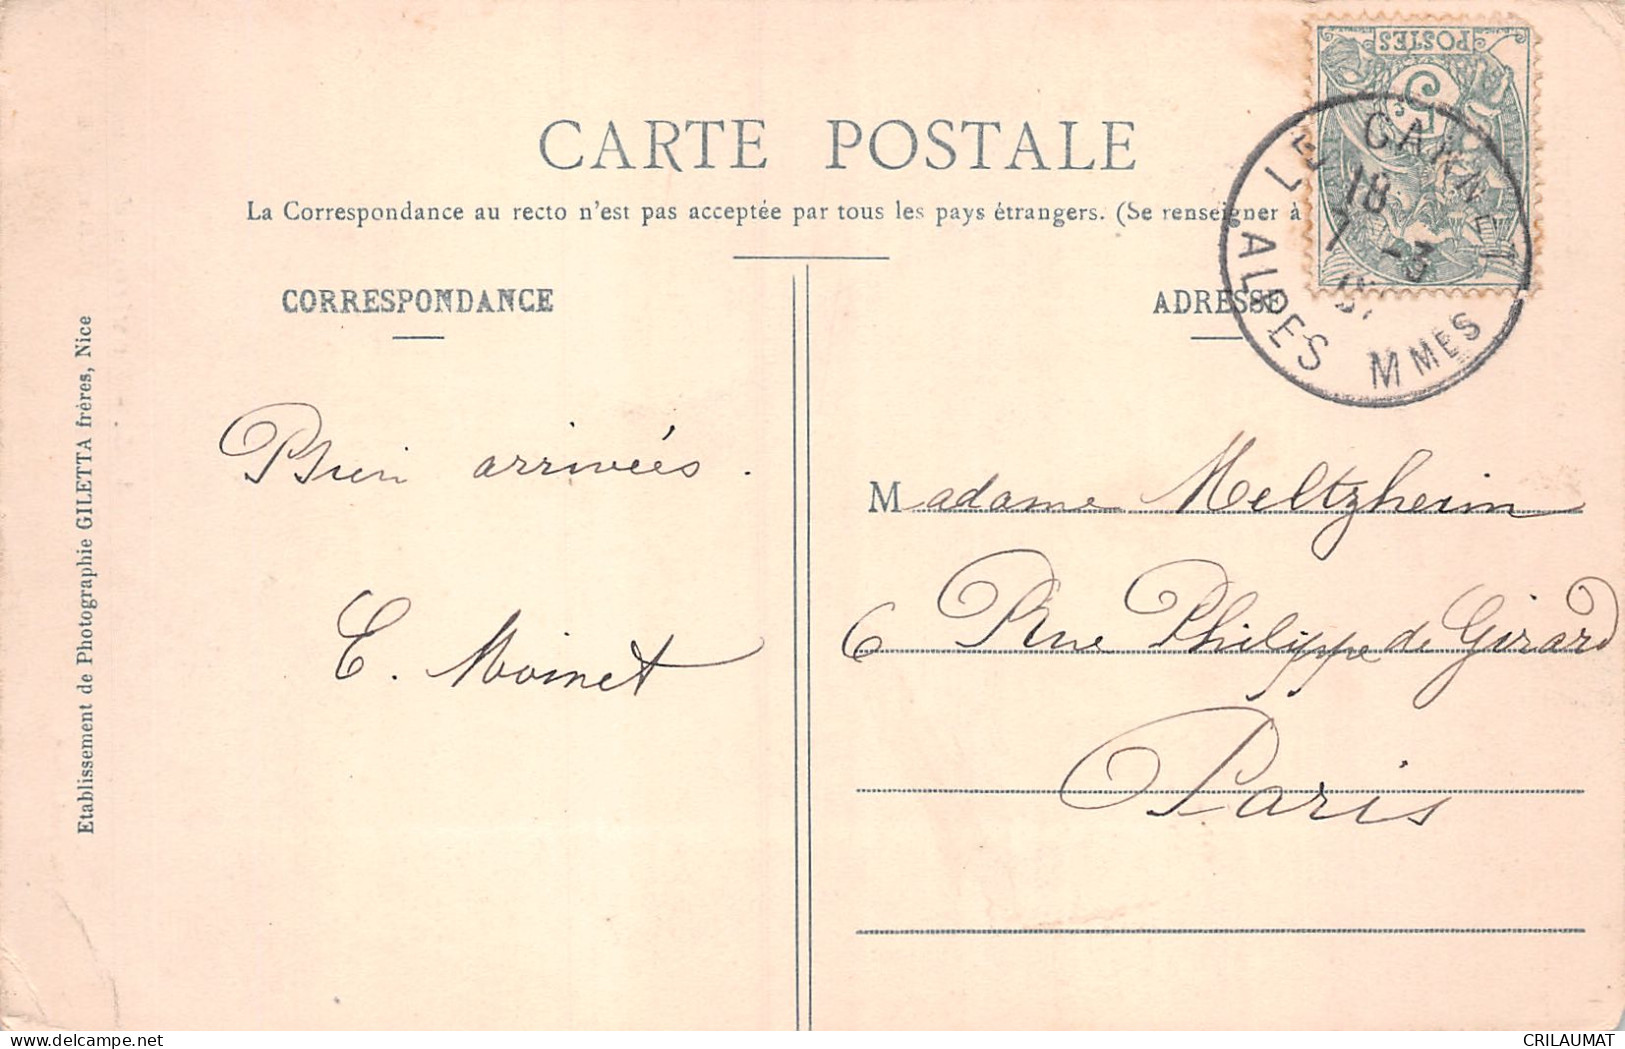 POSTES
5
CARTE POSTALE
La Correspondance au recto n'est pas acceptée par tous les pays étrangers. (Se renseigner à
LE CANNET
18
7 -3
ALPES MMES
CORRESPONDANCE
ADRESSE
Bien arrivées.
E. Moinet
Madame Meltzheim
6 Rue Philippe de Girard
Paris
Etablissement de Photographie GILETTA frères, Nice
CRILAUMAT